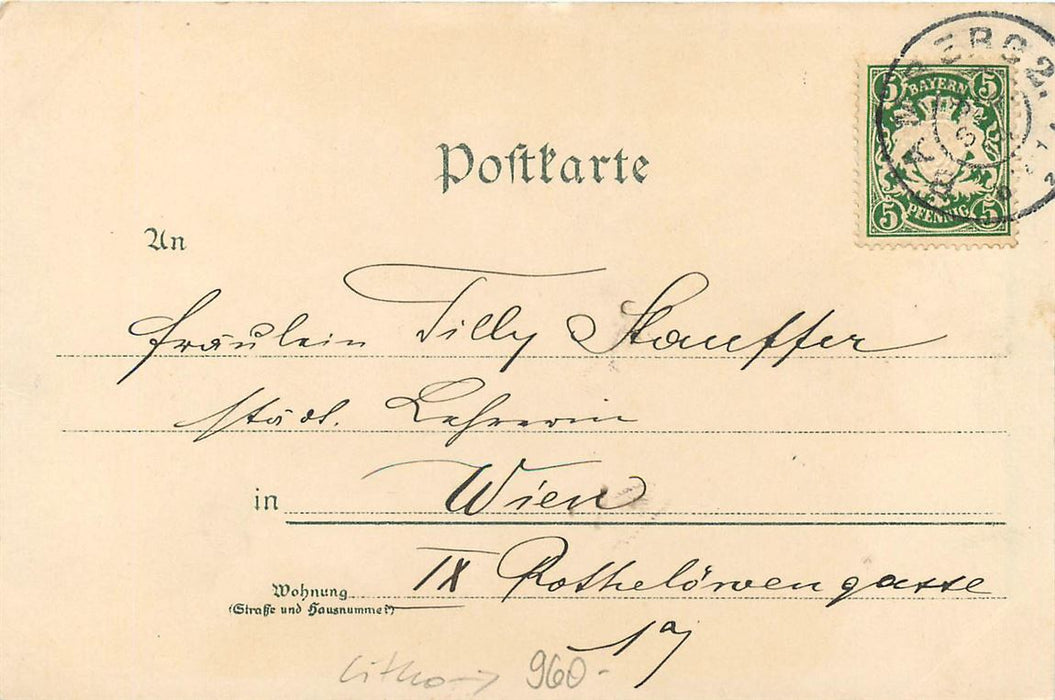 Postkarte
BAMBERG 2.
5 BAYERN 5
5 PFENNIG 5
An
Fräulein Tilly Stauffer
städt. Lehrerin
in Wien
Wohnung IX Rothelöwengasse
(Straße und Hausnummer)
1a)
Litho 960.-